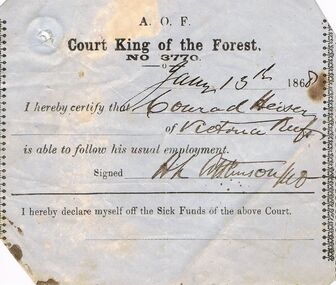 A. O. F.
Court King of the Forest.
NO 3770.
Jany 13th 1868
I hereby certify that Conrad Heiser
of Victoria Reef
is able to follow his usual employment.
Signed Atkinson
I hereby declare myself off the Sick Funds of the above Court.